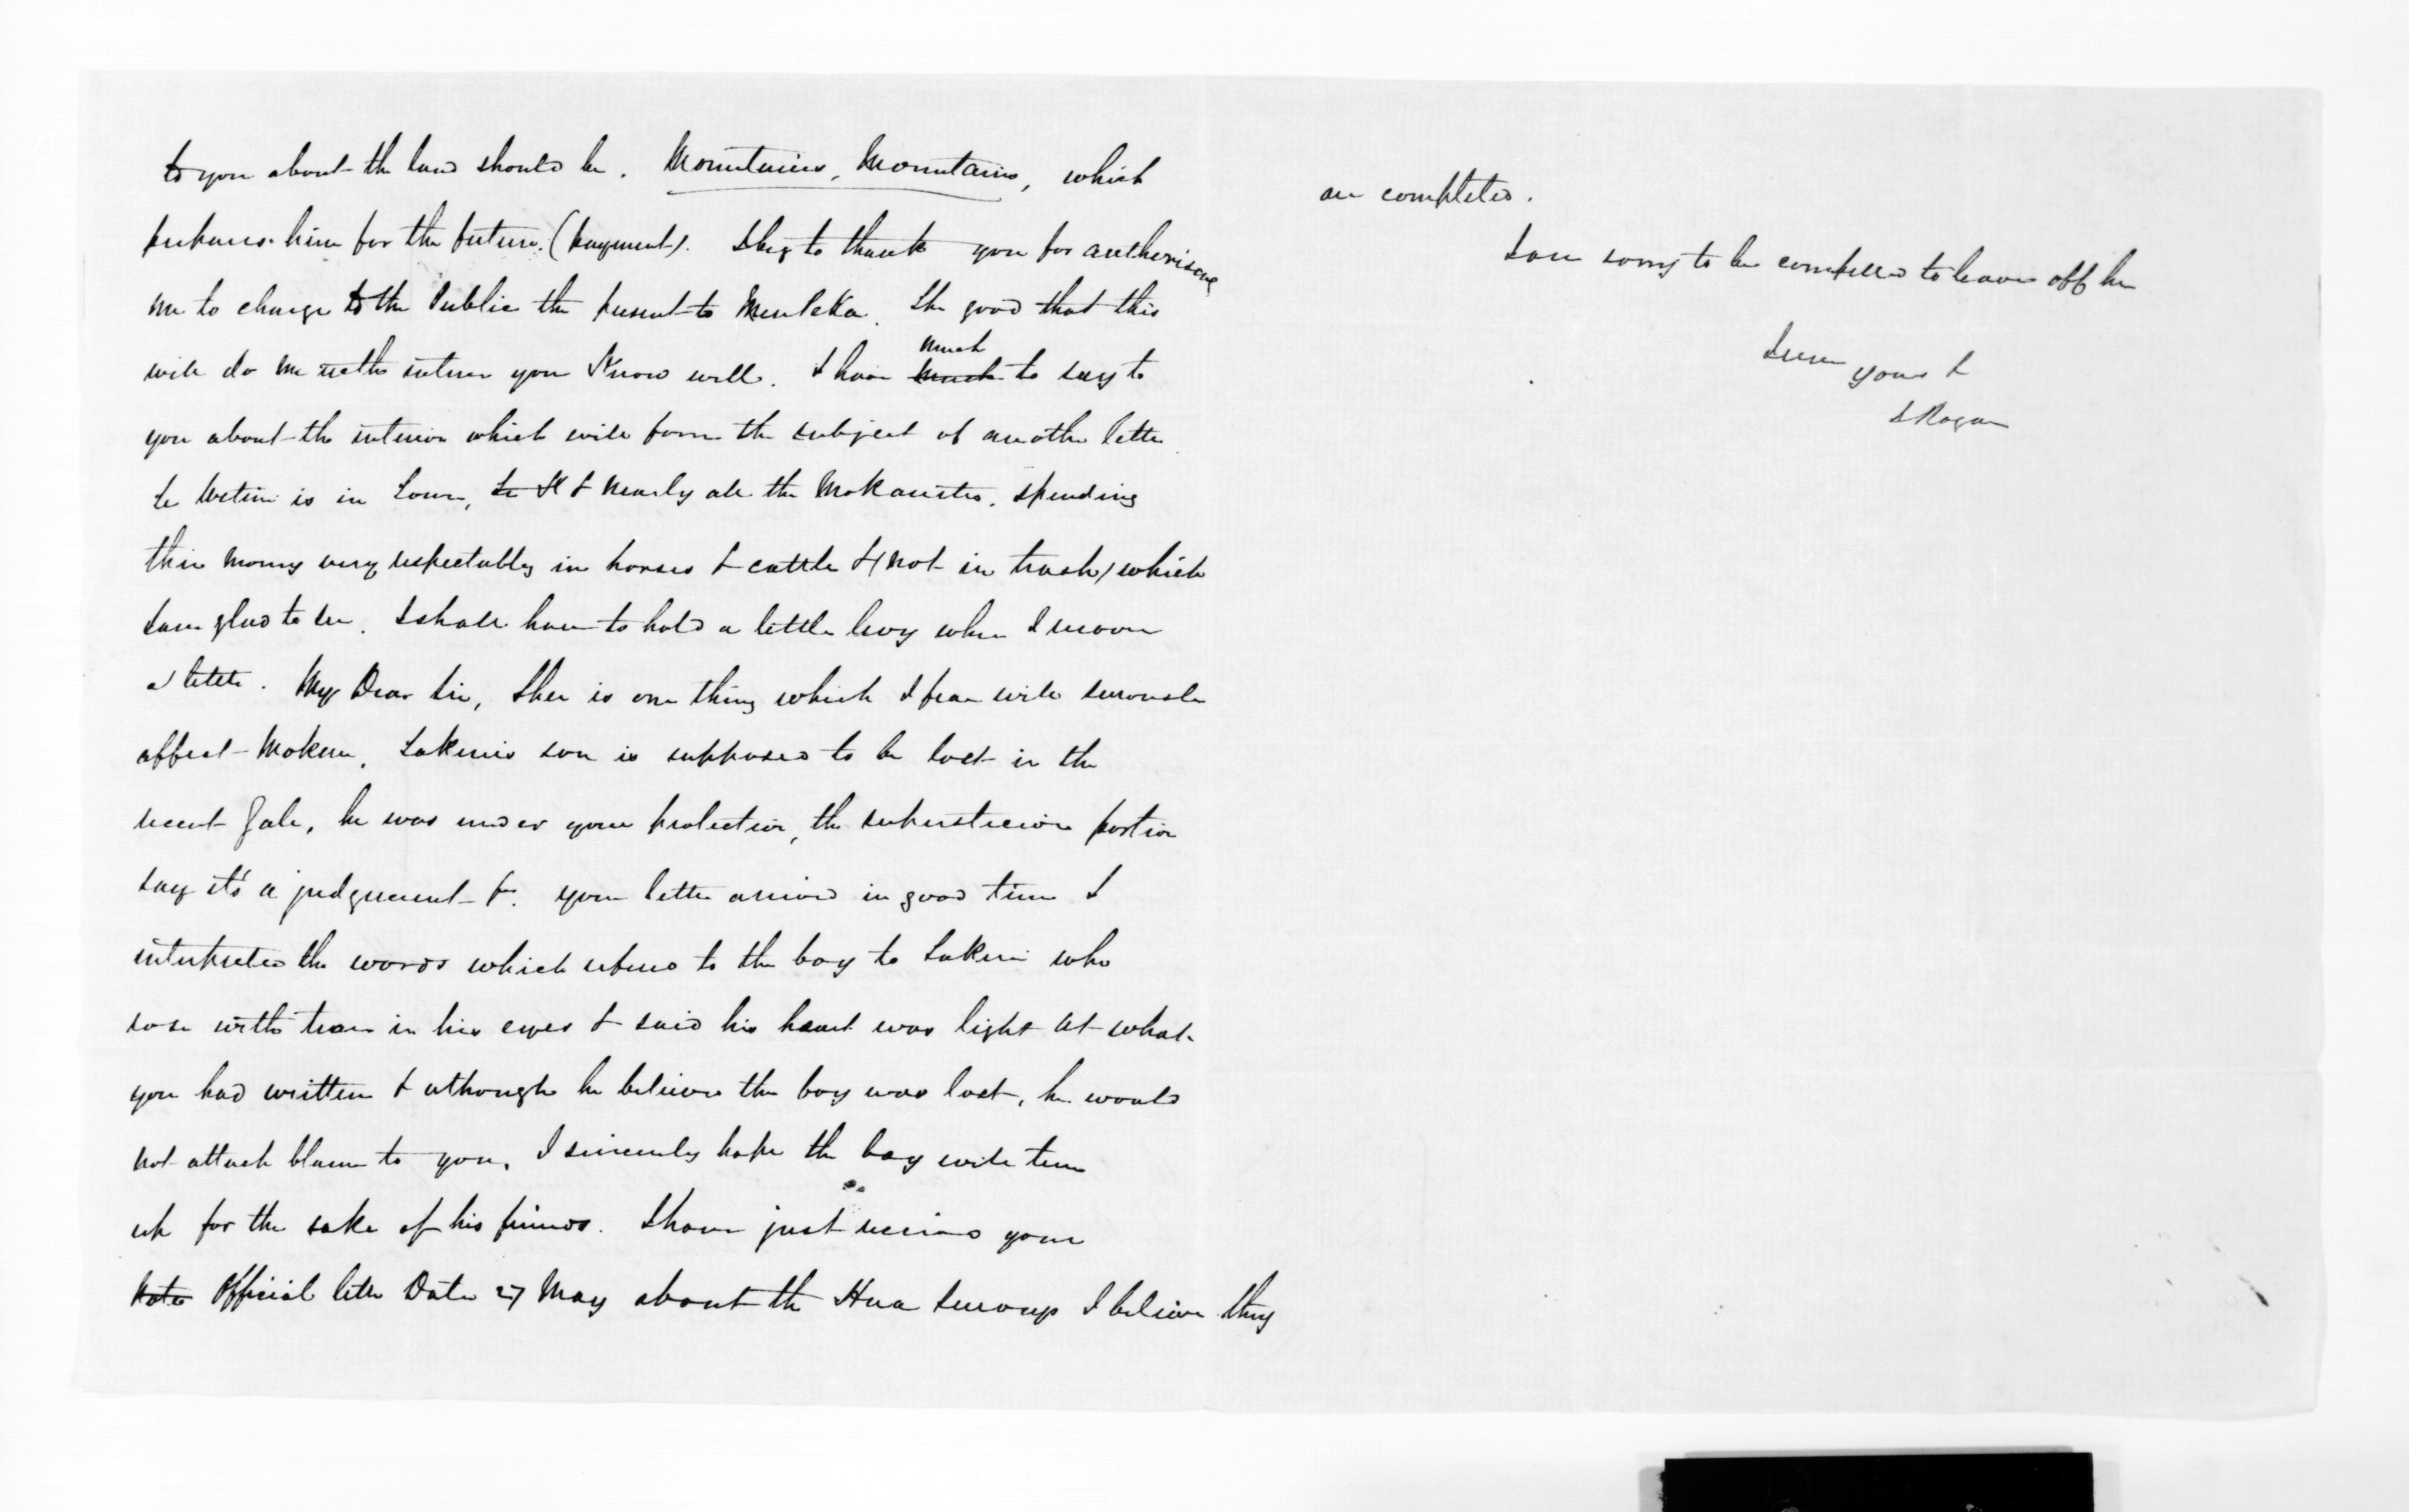 to you about the land should be. Mountains, Mountains, which
prepares him for the future (payment). I beg to thank you for authorising
me to charge to the Public the present to The good that this
will do me with you know well. I have much much to say to
you about the interior which will form the subject of another letter
is in Town, & nearly all the spending
their money very respectably in horses & cattle &(not in trash) which
I am glad to see. I shall have to hold a little levy when I move
a little. My Dear Sir, There is one thing which I fear will seriously
affect Mokau, Takerei's son is supposed to be lost in the
recent Gale, he was under your protection, the portion
say it's a judgment &c. your letter arrived in good time I
interpreted the words which refers to the boy to Takerei who
rose with tears in his eyes & said his heart was light at what
you had written & although he believes the boy was lost, he would
not attach blame to you. I sincerely hope the boy will turn
up for the sake of his friends. I have just received your
Official letter Date 27 May about the Hua Surveys I believe they
are completed.
I am sorry to be compelled to leave off here
yours &
J Rogan